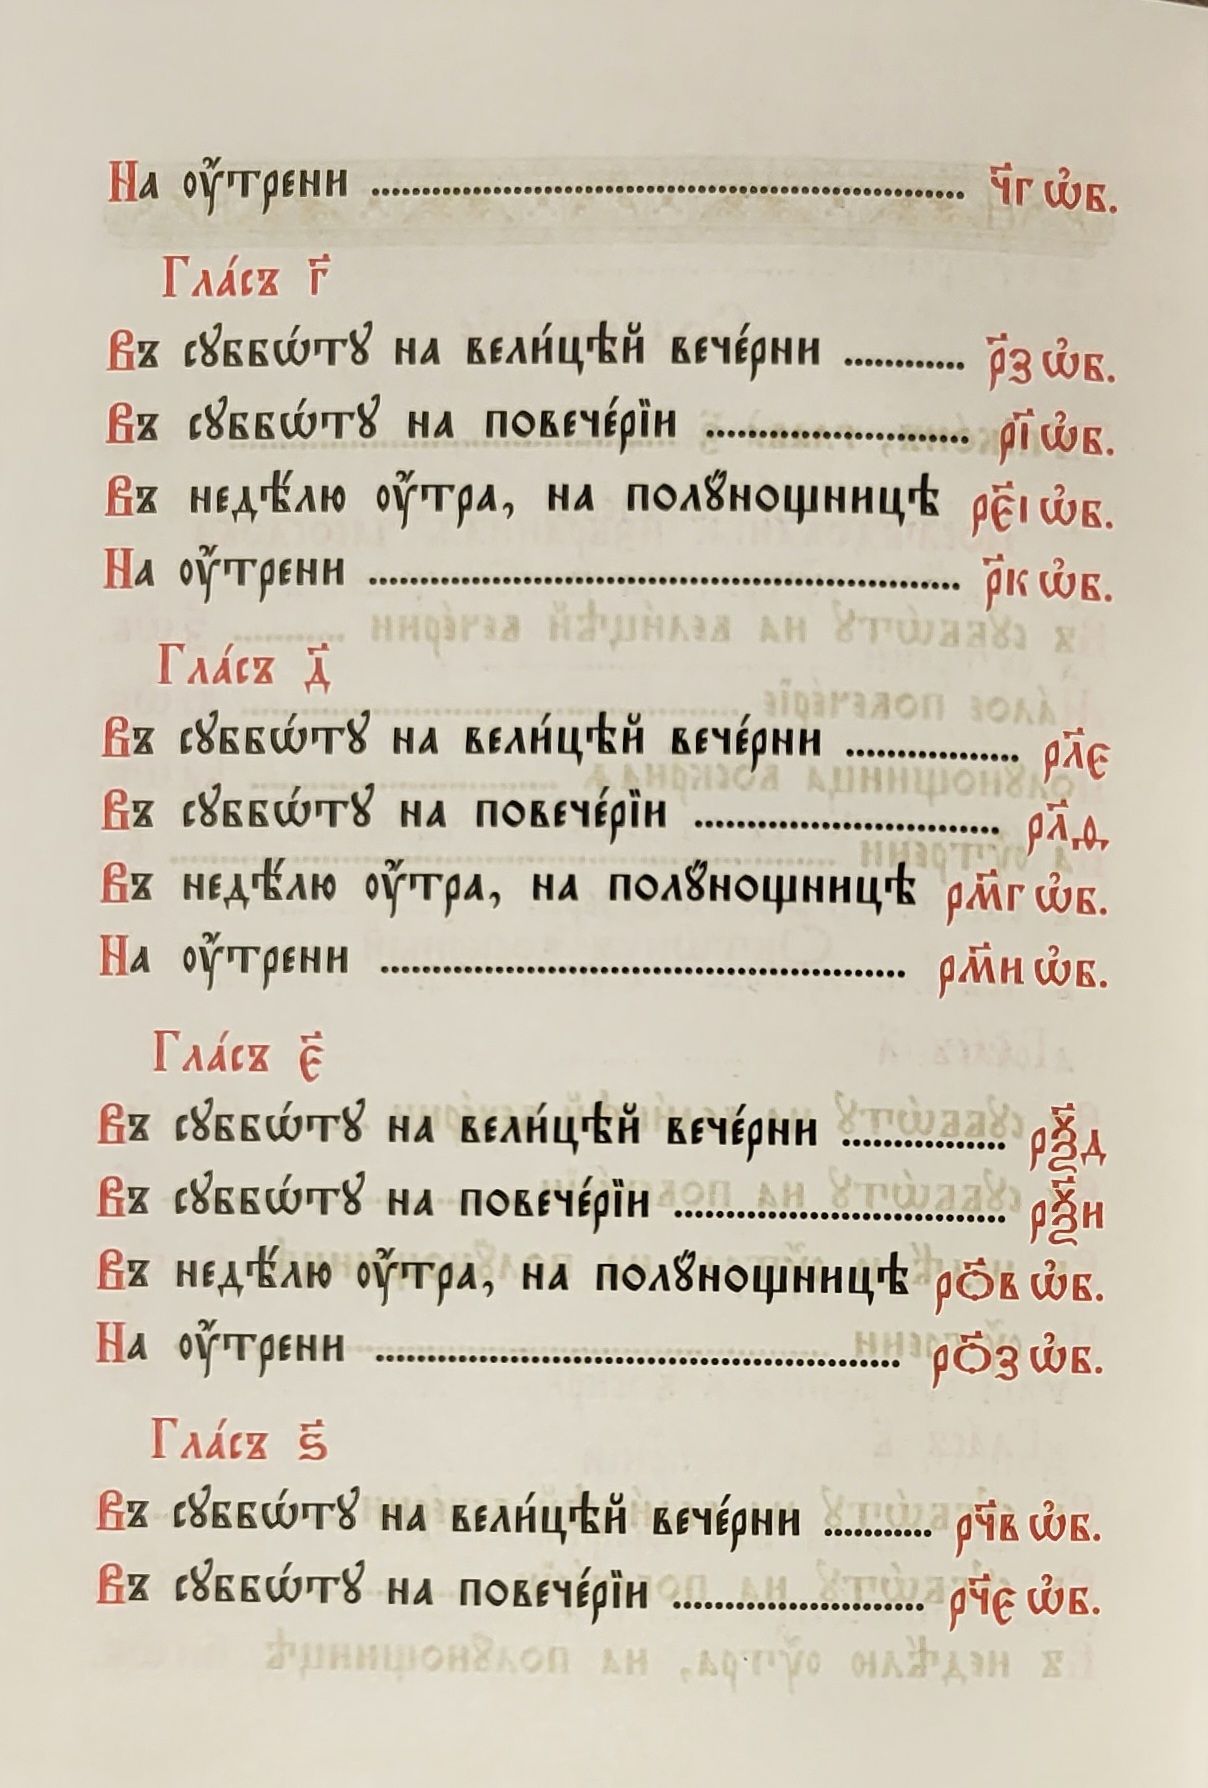 На оу҆́трени ........ ч҃г ѡ҆б.
Гла́съ г҃
Въ сꙋббѡ́тꙋ на вели́цѣй вече́рни ........ р҃з ѡ҆б.
Въ сꙋббѡ́тꙋ на повече́рїи ........ рі҃ ѡ҆б.
Въ недѣ́лю оу҆́тра, на полꙋ́нощницѣ рє҃і ѡ҆б.
На оу҆́трени ........ р҃к ѡ҆б.
Гла́съ д҃
Въ сꙋббѡ́тꙋ на вели́цѣй вече́рни ........ рл҃є
Въ сꙋббѡ́тꙋ на повече́рїи ........ рл҃,ѳ,
Въ недѣ́лю оу҆́тра, на полꙋ́нощницѣ рм҃г ѡ҆б.
На оу҆́трени ........ рм҃н ѡ҆б.
Гла́съ є҃
Въ сꙋббѡ́тꙋ на вели́цѣй вече́рни ........ рѯ҃д
Въ сꙋббѡ́тꙋ на повече́рїи ........ рѯ҃и
Въ недѣ́лю оу҆́тра, на полꙋ́нощницѣ ро҃в ѡ҆б.
На оу҆́трени ........ ро҃з ѡ҆б.
Гла́съ ѕ҃
Въ сꙋббѡ́тꙋ на вели́цѣй вече́рни ........ рч҃в ѡ҆б.
Въ сꙋббѡ́тꙋ на повече́рїи ........ рч҃є ѡ҆б.